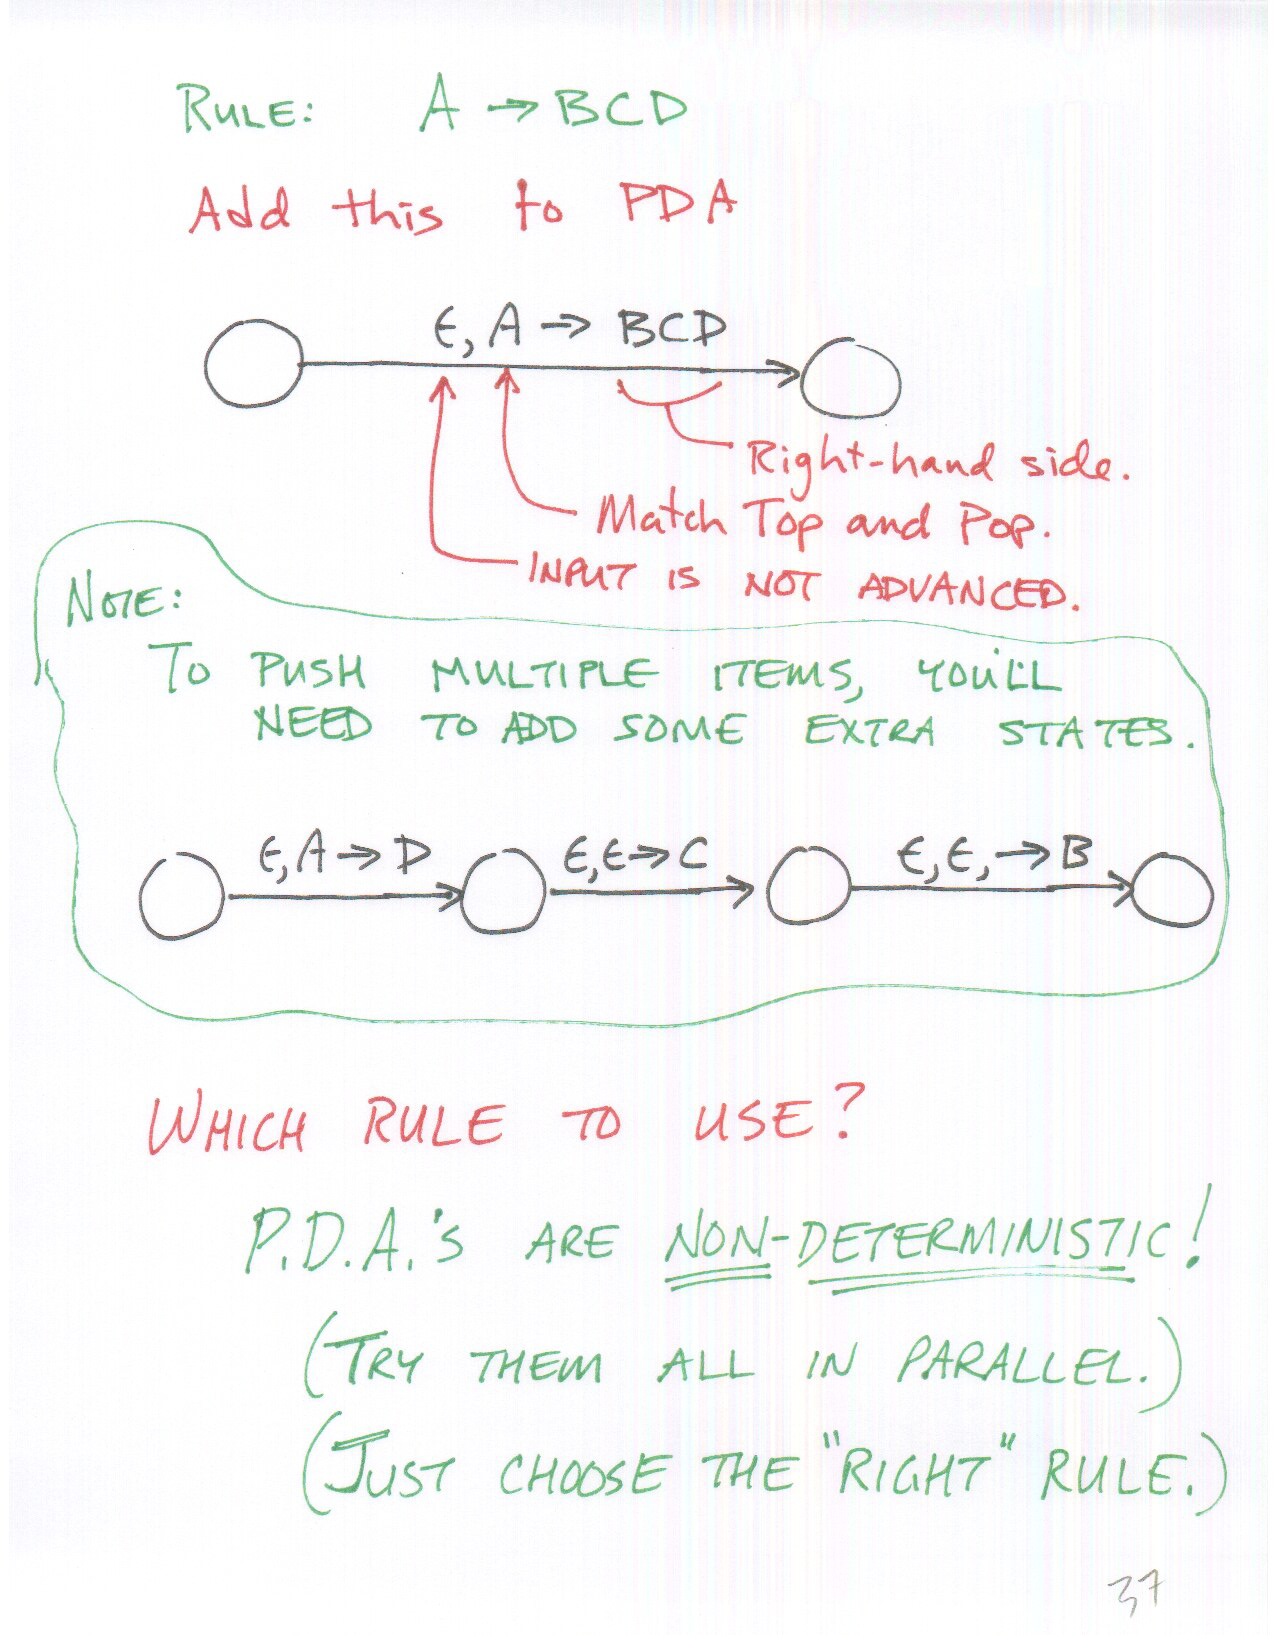 RULE: A → BCD
Add this to PDA
ϵ, A → BCD
Right-hand side.
Match Top and Pop.
INPUT IS NOT ADVANCED.
NOTE:
TO PUSH MULTIPLE ITEMS, YOU'LL
NEED TO ADD SOME EXTRA STATES.
ϵ, A → D ϵ, ϵ → C ϵ, ϵ, → B
WHICH RULE TO USE?
P.D.A.'S ARE NON-DETERMINISTIC!
(TRY THEM ALL IN PARALLEL.)
(JUST CHOOSE THE "RIGHT" RULE.)
37